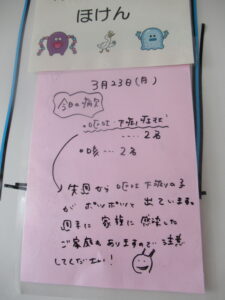 ほけん
3月23日(月)
今日の病欠
・嘔吐・下痢症状
‥‥2名
・咳‥‥2名
先週から嘔吐下痢の子
がポツポツと出ています。
週末に家族に感染した
ご家庭もありますので注意
してください!